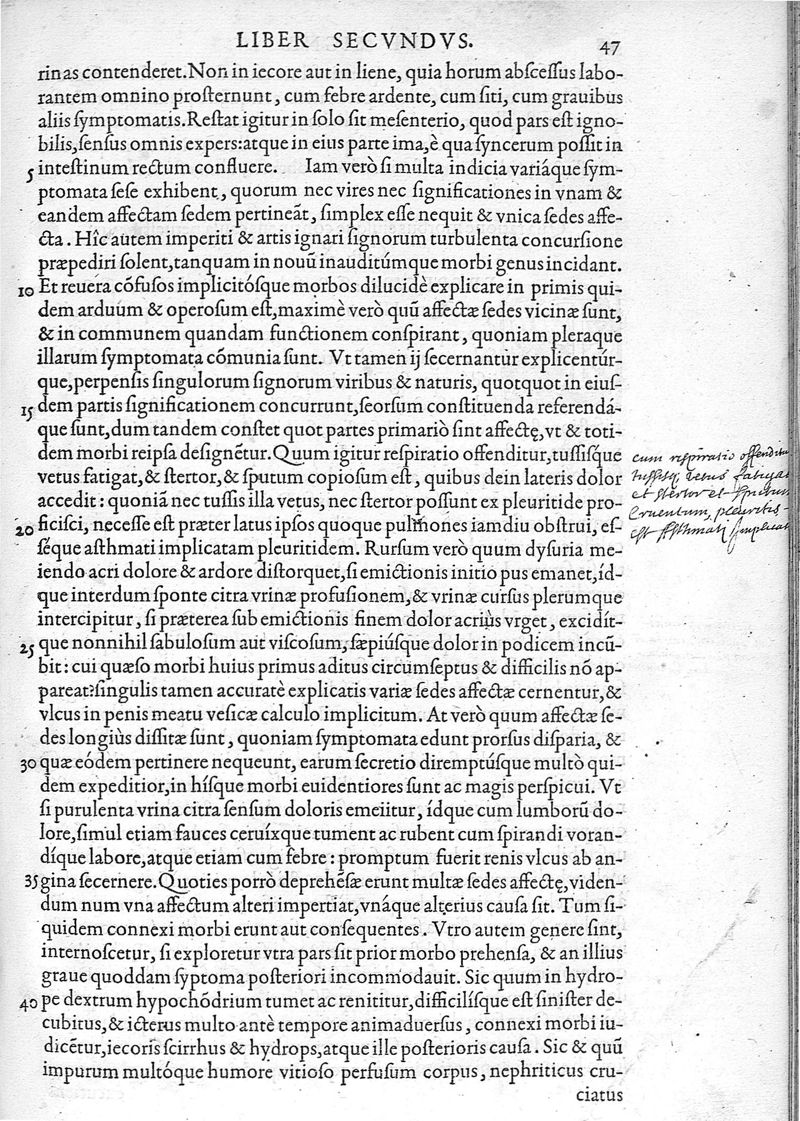 LIBER SECVNDVS. 47
rinas contenderet. Non in iecore aut in liene, quia horum abſceſſus labo-
rantem omnino proſternunt, cum febre ardente, cum ſiti, cum grauibus
aliis ſymptomatis. Reſtat igitur in ſolo ſit meſenterio, quod pars eſt igno-
bilis, ſenſus omnis expers: atque in eius parte ima, è qua ſyncerum poſſit in
5 inteſtinum rectum confluere. Iam verò ſi multa indicia variáque ſym-
ptomata ſeſe exhibent, quorum nec vires nec ſignificationes in vnam &
eandem affectam ſedem pertineãt, ſimplex eſſe nequit & vnica ſedes affe-
cta. Hîc autem imperiti & artis ignari ſignorum turbulenta concurſione
præpediri ſolent, tanquam in nouũ inauditúmque morbi genus incidant.
10 Et reuera cõfuſos implicitóſque morbos dilucidè explicare in primis qui-
dem arduum & operoſum eſt, maximè verò quũ affectæ ſedes vicinæ ſunt,
& in communem quandam functionem conſpirant, quoniam pleraque
illarum ſymptomata cõmunia ſunt. Vt tamen ij ſecernantur explicentúr-
que, perpenſis ſingulorum ſignorum viribus & naturis, quotquot in eiuſ-
15 dem partis ſignificationem concurrunt, ſeorſum conſtituenda referendá-
que ſunt, dum tandem conſtet quot partes primariò ſint affectę, vt & toti-
dem morbi reipſa deſignẽtur. Quum igitur reſpiratio offenditur, tuſſiſque
vetus fatigat, & ſtertor, & ſputum copioſum eſt, quibus dein lateris dolor
accedit: quoniã nec tuſſis illa vetus, nec ſtertor poſſunt ex pleuritide pro-
20 ficiſci, neceſſe eſt præter latus ipſos quoque pulmones iamdiu obſtrui, eſ-
ſéque aſthmati implicatam pleuritidem. Rurſum verò quum dyſuria me-
iendo acri dolore & ardore diſtorquet, ſi emictionis initio pus emanet, íd-
que interdum ſponte citra vrinæ profuſionem, & vrinæ curſus plerumque
intercipitur, ſi præterea ſub emictionis finem dolor acriùs vrget, excidít-
25 que nonnihil ſabuloſum aut viſcoſum, ſæpiúſque dolor in podicem incũ-
bit: cui quæſo morbi huius primus aditus circumſeptus & difficilis nõ ap-
pareat? ſingulis tamen accuratè explicatis variæ ſedes affectæ cernentur, &
vlcus in penis meatu veſicæ calculo implicitum. At verò quum affectæ ſe-
des longiùs diſſitæ ſunt, quoniam ſymptomata edunt prorſus diſparia, &
30 quæ eódem pertinere nequeunt, earum ſecretio diremptúſque multò qui-
dem expeditior, in híſque morbi euidentiores ſunt ac magis perſpicui. Vt
ſi purulenta vrina citra ſenſum doloris emeiitur, ídque cum lumborũ do-
lore, ſimul etiam fauces ceruíxque tument ac rubent cum ſpirandi voran-
díque labore, atque etiam cum febre: promptum fuerit renis vlcus ab an-
35 gina ſecernere. Quoties porrò deprehẽſæ erunt multæ ſedes affectę, viden-
dum num vna affectum alteri impertiat, vnáque alterius cauſa ſit. Tum ſi-
quidem connexi morbi erunt aut conſequentes. Vtro autem genere ſint,
internoſcetur, ſi exploretur vtra pars ſit prior morbo prehenſa, & an illius
graue quoddam ſyptoma poſteriori incommodauit. Sic quum in hydro-
40 pe dextrum hypochõdrium tumet ac renititur, difficilíſque eſt ſiniſter de-
cubitus, & icterus multo antè tempore animaduerſus, connexi morbi iu-
dicẽtur, iecoris ſcirrhus & hydrops, atque ille poſterioris cauſa. Sic & quũ
impurum multóque humore vitioſo perfuſum corpus, nephriticus cru-
ciatus
cum respiratio offenditur
tussisq vetus fatigat
et stertor et sputum
cruentum, pleuritis
est Asthmati implicat